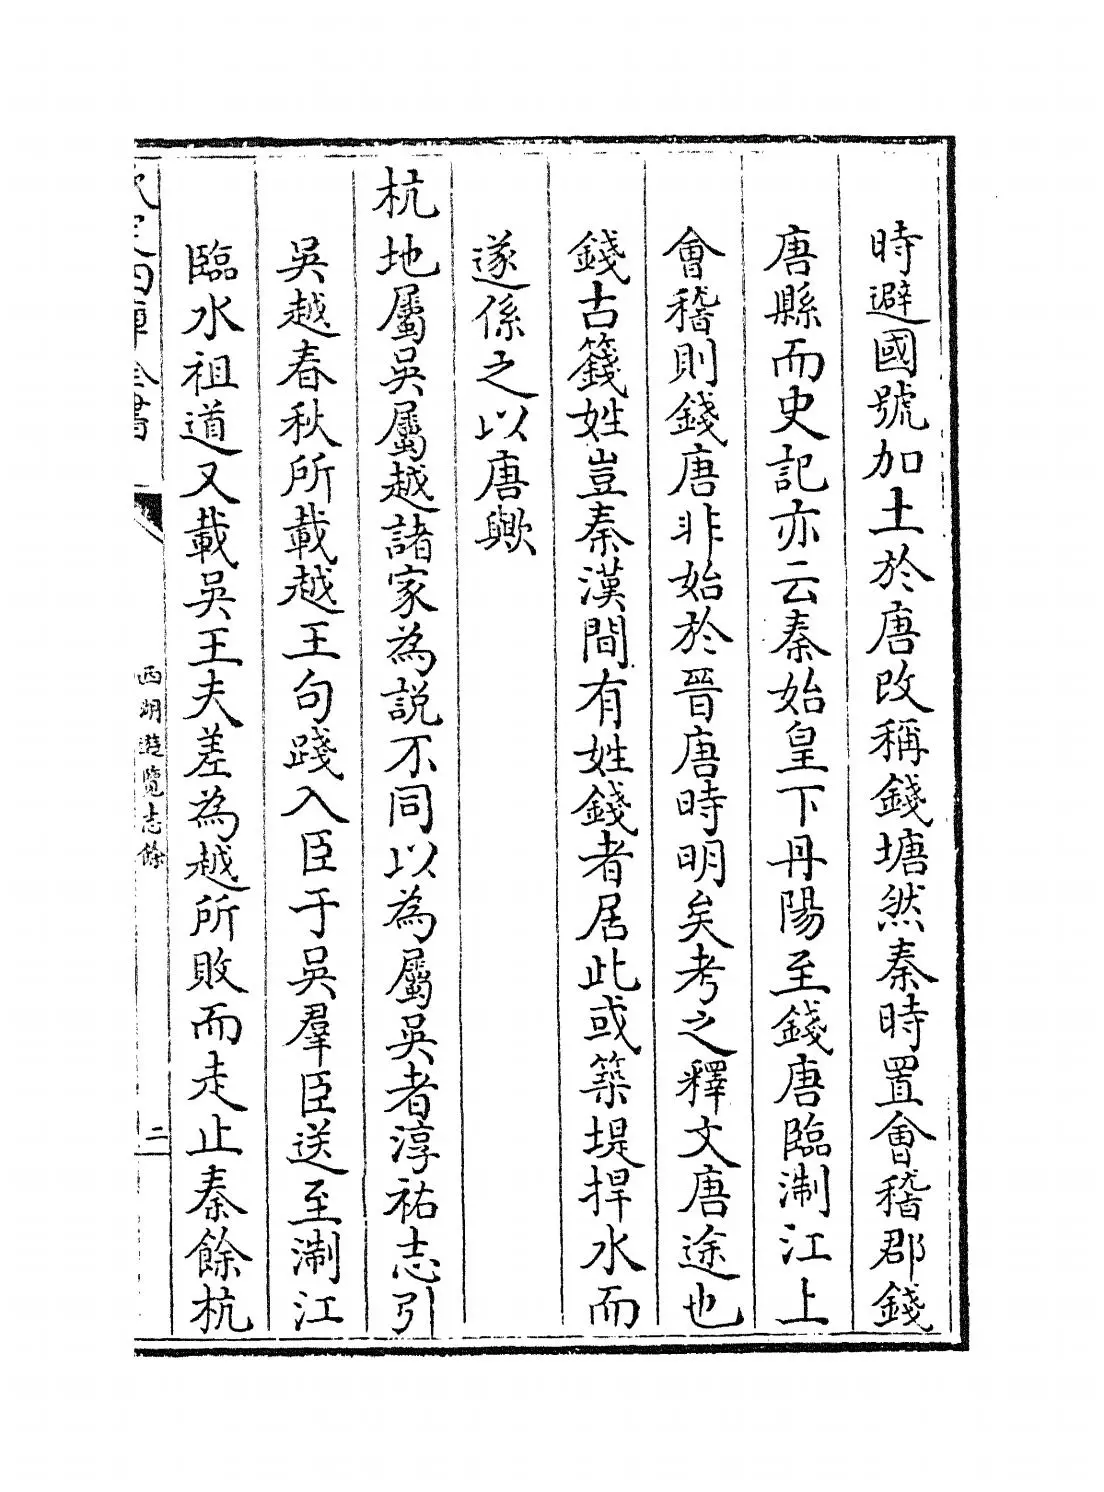 時避國號加土於唐改稱錢塘然秦時置會稽郡錢
唐縣而史記亦云秦始皇下丹陽至錢唐臨淛江上
會稽則錢唐非始於晉唐時明矣考之釋文唐途也
錢古籛姓豈秦漢間有姓錢者居此或築堤捍水而
遂係之以唐歟
杭地屬吳屬越諸家為説不同以為屬吳者淳祐志引
吳越春秋所載越王句踐入臣于吳羣臣送至淛江
臨水祖道又載吳王夫差為越所敗而走止秦餘杭
欽定四庫全書
西湖遊覽志餘
二